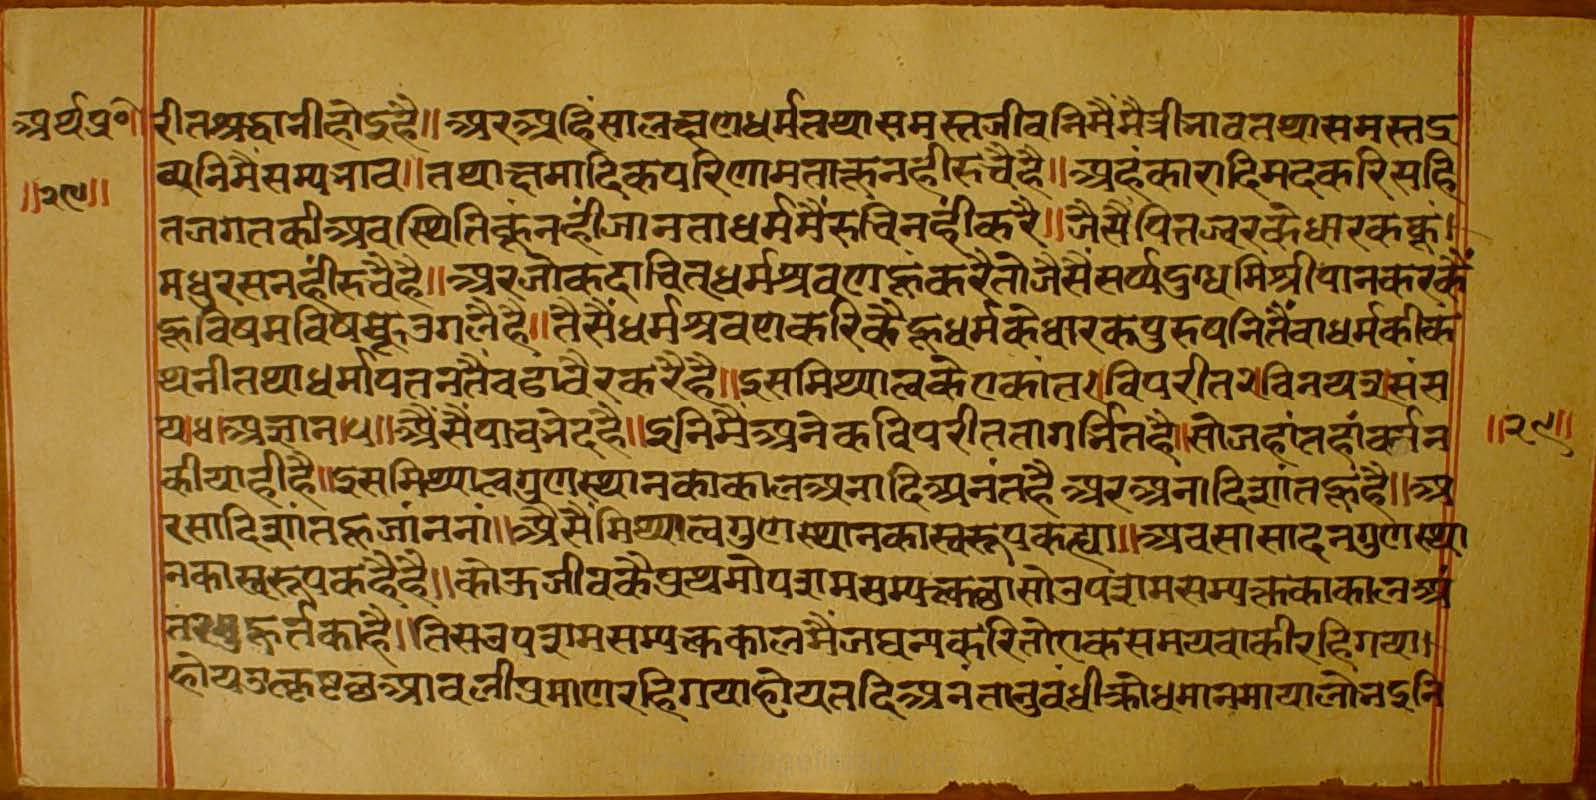 अर्थप्र॰
॥२९॥
रीतश्रद्वानीहोइहै॥अरअहिंसालक्षणधर्मतथासमस्तजीवनिमैंमैत्रीभावतथासमस्तद्र
व्यनिमैंसम्यभाव॥तथाक्षमादिकपरिणामताकूनहीरुचैहै॥अहंकारादिमदकरिसहि
तजगतकीअवस्थितिकूंनहींजानताधर्ममैंरुचिनहींकरै॥जैसैंपित्तज्वरकेधारककूं।
मधुरसनहींरुचैहै॥अरजोकदाचित्धर्मश्रवणहूकरैतोजैसैंसर्प्पदुग्धमिश्रीपानकरकैं
हूविषमविषकूउगलैहै॥तैसैंधर्मश्रवणकरिकैहूधर्मकेधारकपुरुषनितैंवाधर्मकीक
थनीतथाधर्मापतनतैंवडावैरकरैहै॥इसमिथ्यात्वकेएकांत१विपरीत२विनय३संस
य४अज्ञान५॥अैसैंपाचभेदहै॥इनिमैंअनेकविपरीततागर्भितहै॥सोजहांतहांवर्नन
कीयाहीहै॥इसमिथ्यात्वगुणस्थानकाकालअनादिअनंतहैअरअनादिशांतहूहै॥अ
रसादिशांतहूजांननां॥अैसैंमिथ्यात्वगुणस्थानकास्वरूपकह्या॥अवसासादनगुणस्था
नकास्वरूपकहैहै॥कोऊजीवकैप्रथमोपशमसम्यक्तथासोउपशमसम्यक्तकाकालअं
तरमुहूर्तकाहै॥तिसउपशमसम्यक्तकालमैंजघन्यकरितोएकसमयवाकीरहिगया।
होयउत्कृष्टछआवलीप्रमाणरहिगयाहोयतदिअनंतानुवंधीक्रोधमानमायालोभइनि
॥२९॥